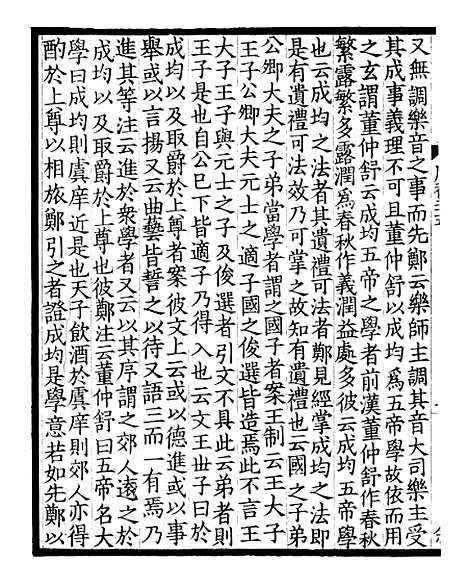 又無調樂音之事而先鄭云樂師主調其音大司樂主受
其成事義理不可且董仲舒以成均爲五帝學故依而用
之玄謂董仲舒云成均五帝之學者前漢董仲舒作春秋
繁露繁多露潤爲春秋作義潤益處多彼云成均五帝學
也云成均之法者其遺禮可法者鄭見經掌成均之法即
是有遺禮可法效乃可掌之故知有遺禮也云國之子弟
公卿大夫之子弟當學者謂之國子者案王制云王大子
王子公卿大夫元士之適子國之俊選皆造焉此不言王
大子王子與元士之子及俊選者引文不具此云弟者則
王子是也自公巳下皆適子乃得入也云文王世子曰於
成均以及取爵於上尊者案彼文上云或以德進或以事
舉或以言揚又云曲藝皆誓之以待又語三而一有焉乃
進其等注云進於衆學者又云以其序謂之郊人逺之於
成均以及取爵於上尊也彼鄭注云董仲舒曰五帝名大
學曰成均則虞庠近是也天子飲酒於虞庠則郊人亦得
酌於上尊以相旅鄭引之者證成均是學意若如先鄭以